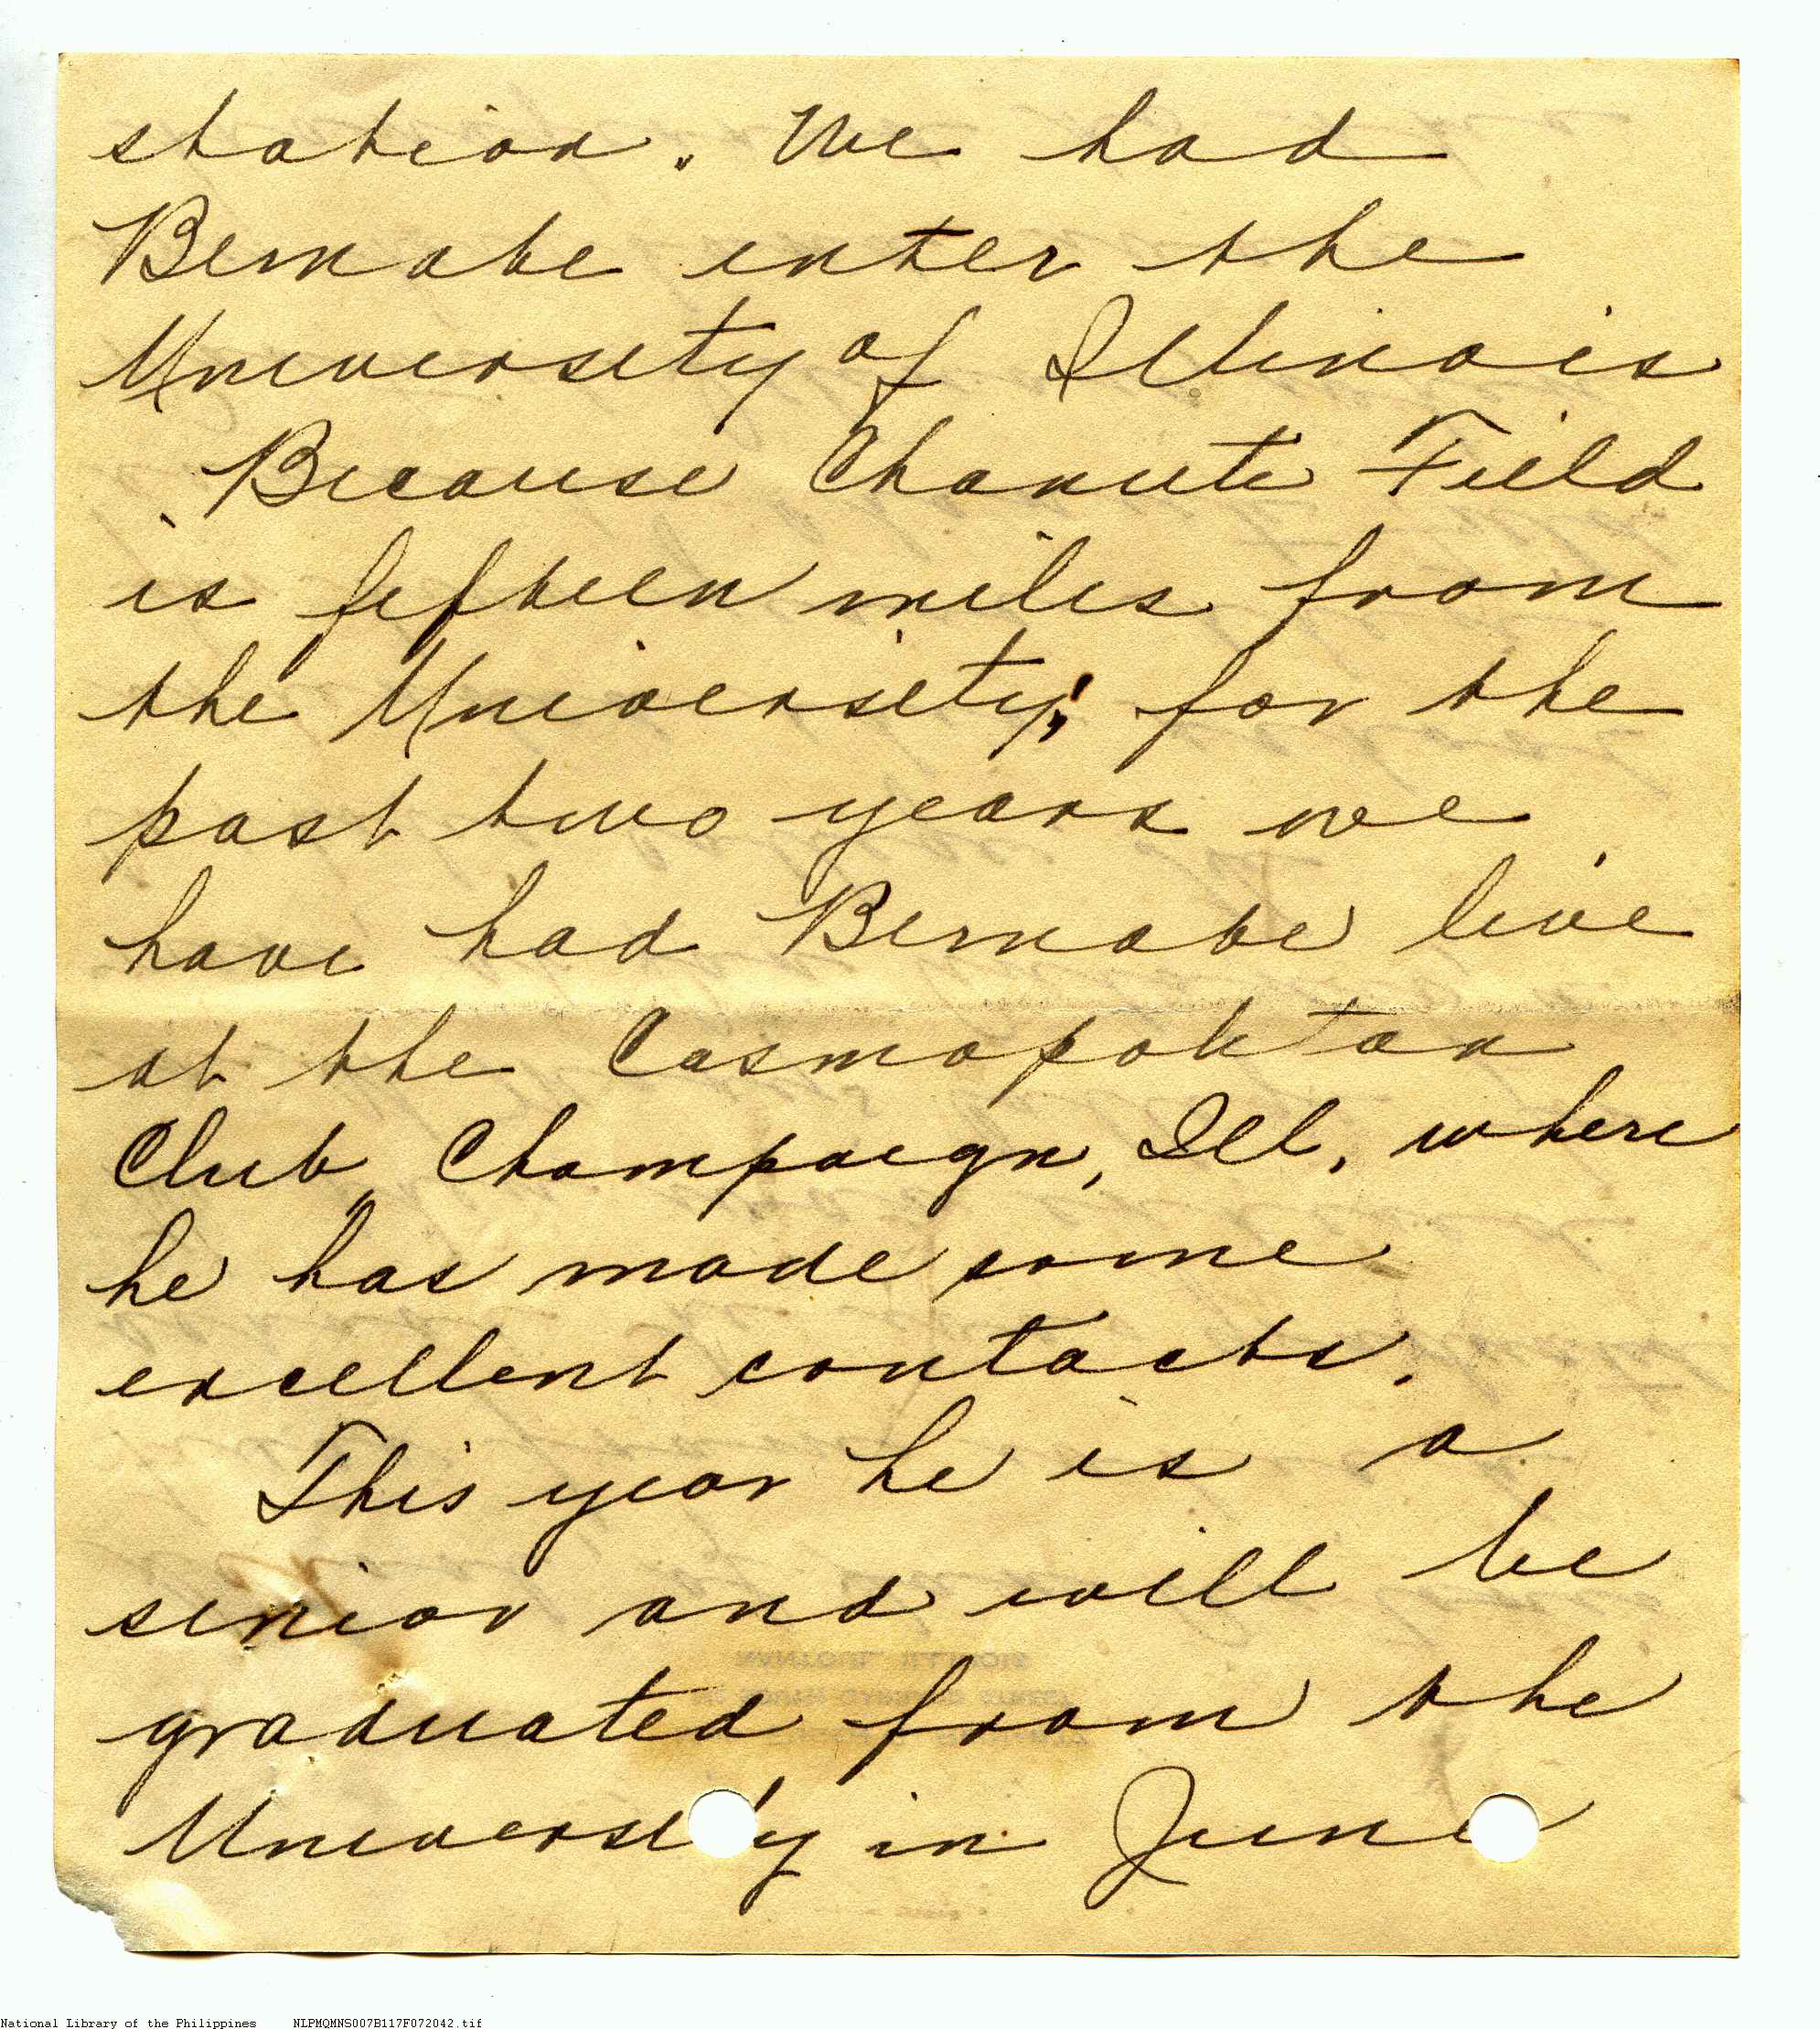 station. We had
Bernabe enter the
University of Illinois
Because Chanute Field
is fifteen miles from
the University, for the
past two years we
have had Bernabe live
at the Cosmopolitan
Club, Champaign, Ill. where
he has made some
excellent contacts.
This year he is a
senior and will be
graduated from the
University in June
National Library of the Philippines NLPMQMNS007B117F072042.tif